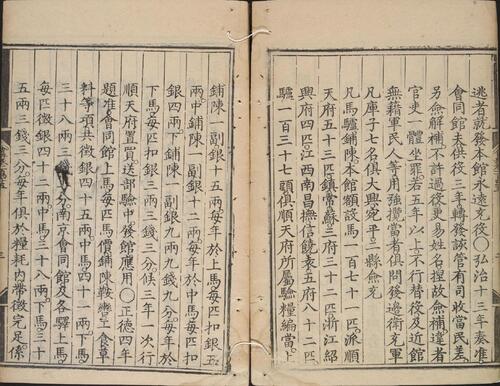 逃者就發本館永遠充役〇弘治十三年奏准
會同館夫供役三年轉發該管有司收當民差
另僉解補不許過役更易姓名捏故僉補違者
官吏一體坐罪若五年以上不行替役及近館
無藉軍民人等用強攬當者俱問發邊衛充軍
凡庫子七名俱大興宛平二縣僉充
凡馬驢鋪陳本館額設馬一百七十一匹派順
天府五十三匹鎮常蘇三府三十二匹浙江紹
興府四匹江西南昌撫信饒袁五府八十二匹
驢一百三十七頭俱順天府所屬驗糧編當上
鋪陳一副銀十五兩年於上馬每匹扣銀五
兩中鋪陳一副銀十二兩每年於中馬每匹扣
銀四兩下鋪陳一副銀九兩九錢九分每年於
下馬每匹扣銀三兩三錢三分候三年一次行
順天府置買送部驗中發館應用〇正德四年
題准會同館上馬每匹馬價鋪陳鞍轡工食草
料等項共徵銀四十五兩中馬四十二兩下馬
三十八兩三錢分南京會同館及各驛上馬
每匹徵銀四十二兩中馬三十八兩下馬三十
五兩三錢三分每年俱於糧耗內帶徵完足係